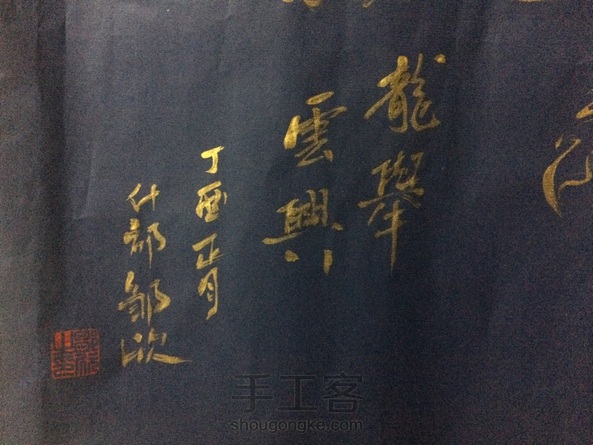 龍舉
雲興
丁酉正月
什邡鄒
手工客
shougongke.com